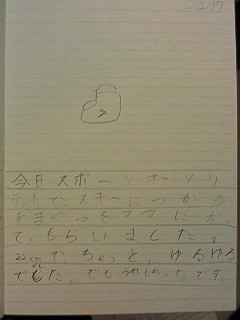 2 17
今日スポーツオーソリ
ティでスキーにつかう
ながぐつをママにかっ
て、もらいました。
22cmでちょっと、ゆるゆる
でした。でもうれしかったです。